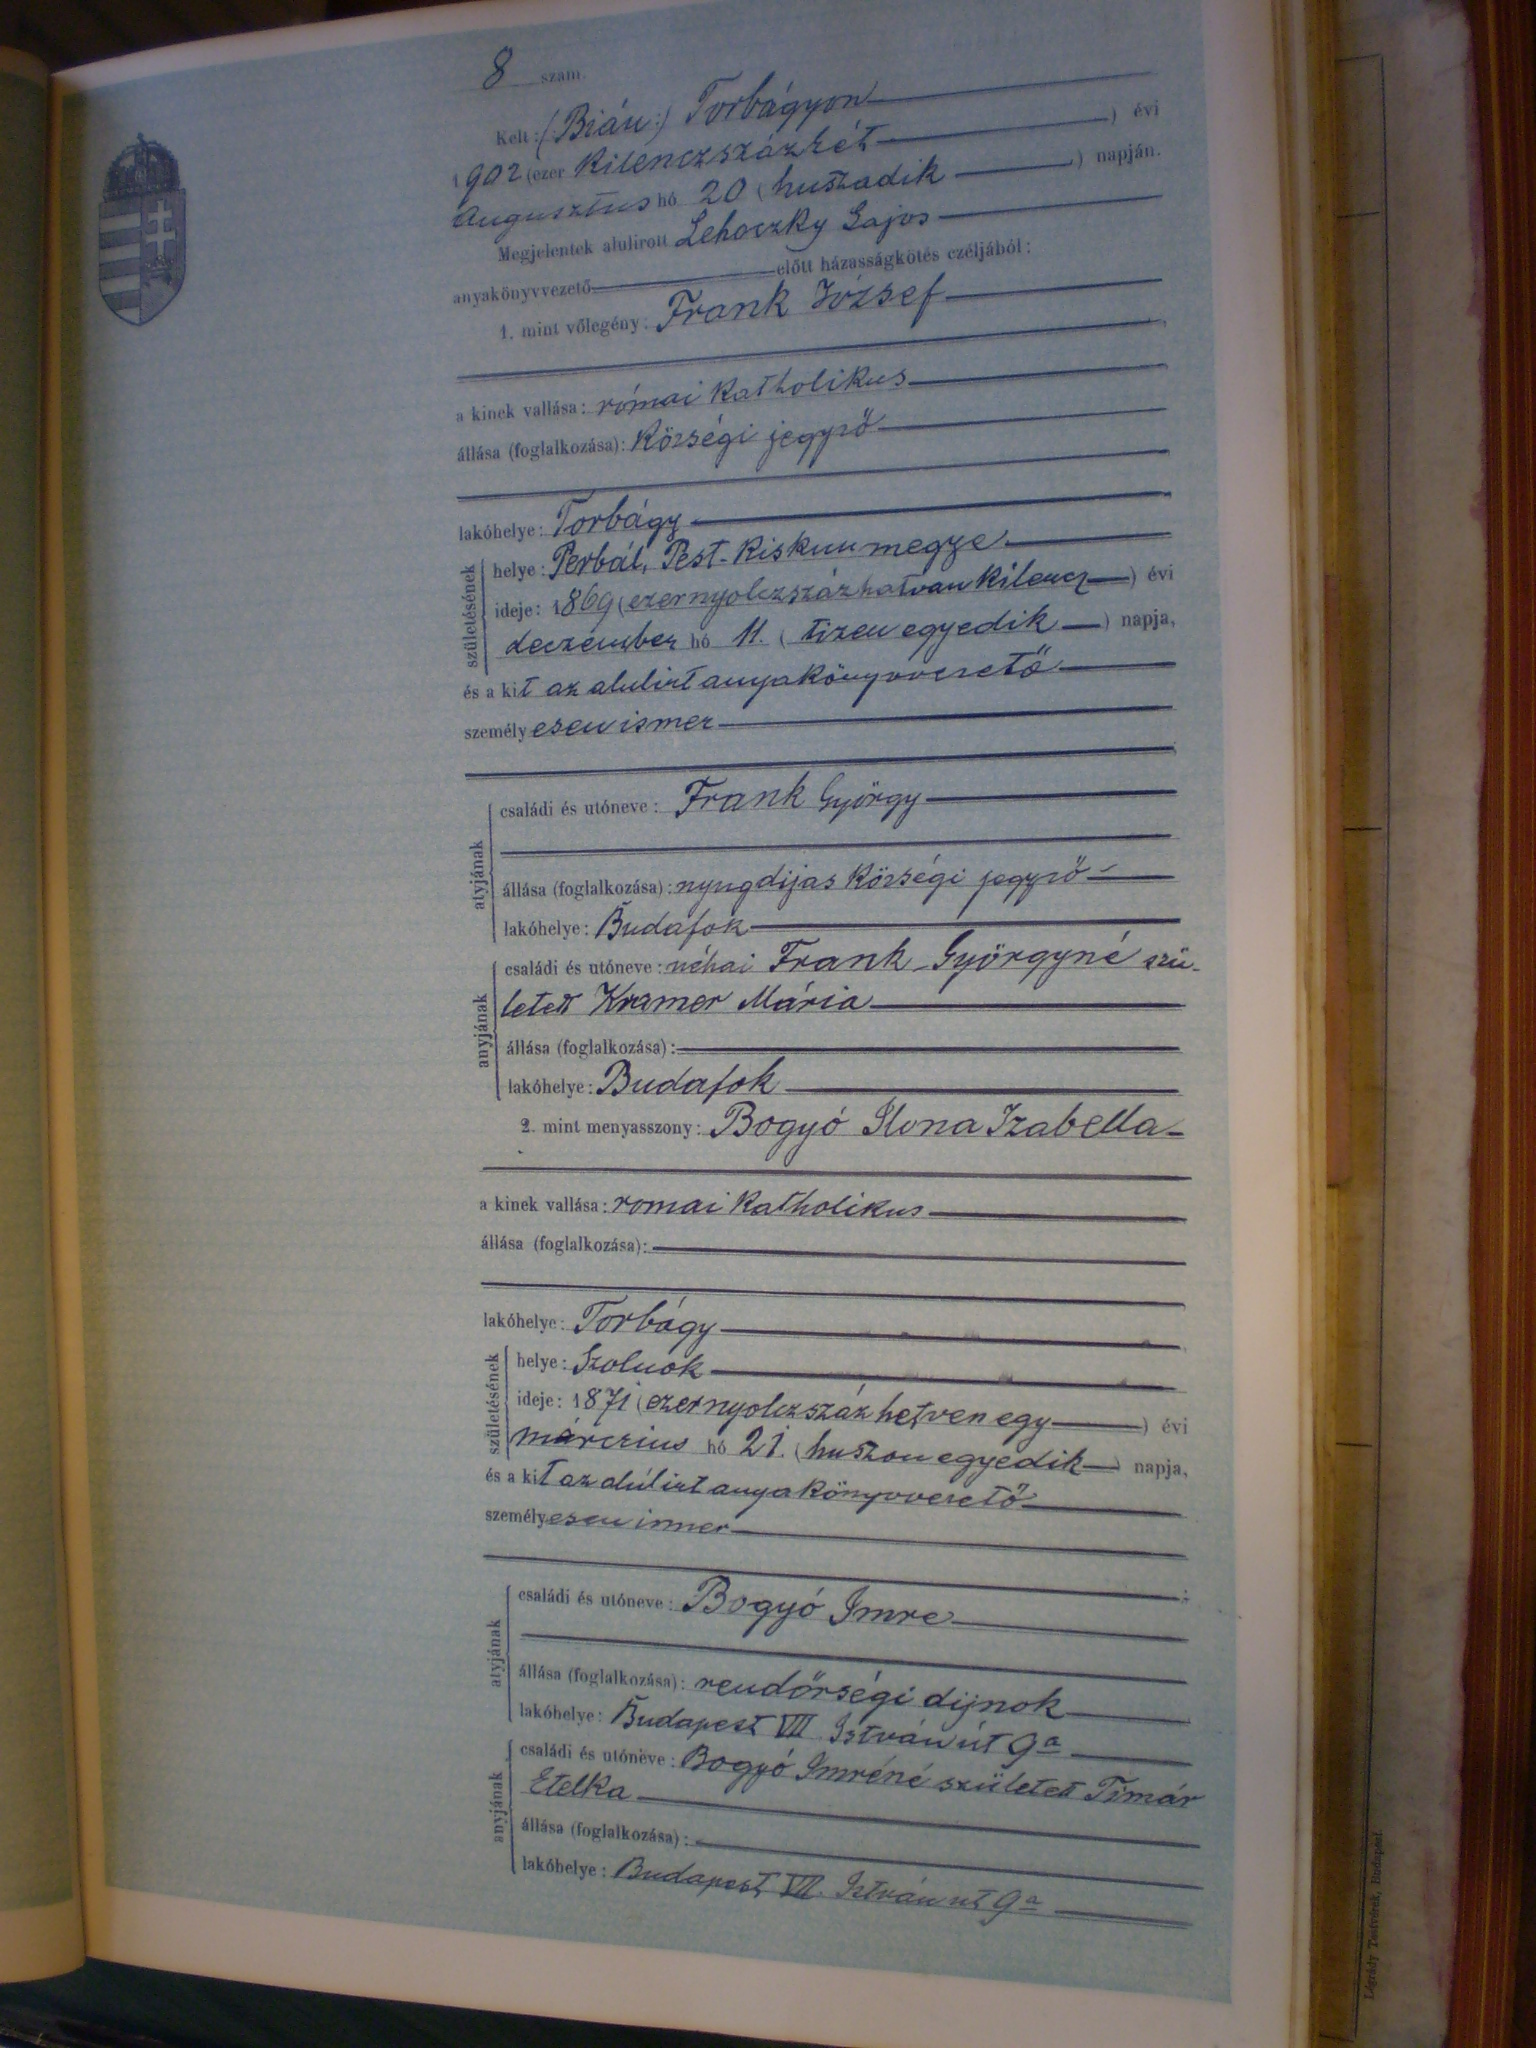 8 szám.
Kelt: (Bián:) Torbágyon
1902 (ezer kilenczszázkét) évi
Augusztus hó 20 (huszadik) napján.
Megjelentek alulirott Lehoczky Lajos
anyakönyvvezető előtt házasságkötés czéljából:
1. mint vőlegény: Frank József
a kinek vallása: római katholikus
állása (foglalkozása): községi jegyző
lakóhelye: Torbágy
születésének helye: Perbál, Pest-Kiskun megye
ideje: 1869 (ezernyolczszázhatvan kilencz) évi
deczember hó 11. (tizenegyedik) napja,
és a kit az alulirt anyakönyvvezető
személyesen ismer
atyjának családi és utóneve: Frank György
állása (foglalkozása): nyugdijas községi jegyző
lakóhelye: Budafok
anyjának családi és utóneve: néhai Frank Györgyné szü-
letett Kramer Mária
állása (foglalkozása):
lakóhelye: Budafok
2. mint menyasszony: Bogyó Ilona Izabella
a kinek vallása: romai katholikus
állása (foglalkozása):
lakóhelye: Torbágy
születésének helye: Szolnok
ideje: 1871 (ezernyolczszáz hetven egy) évi
márczius hó 21. (huszonegyedik) napja,
és a kit az alúlirt anyakönyvvezető
személyesen ismer
atyjának családi és utóneve: Bogyó Imre
állása (foglalkozása): rendőrségi dijnok
lakóhelye: Budapest VII István út 9a
anyjának családi és utóneve: Bogyó Imréné született Timár
Etelka
állása (foglalkozása):
lakóhelye: Budapest, VII. István ut 9a
Légrády Testvérek, Budapest.